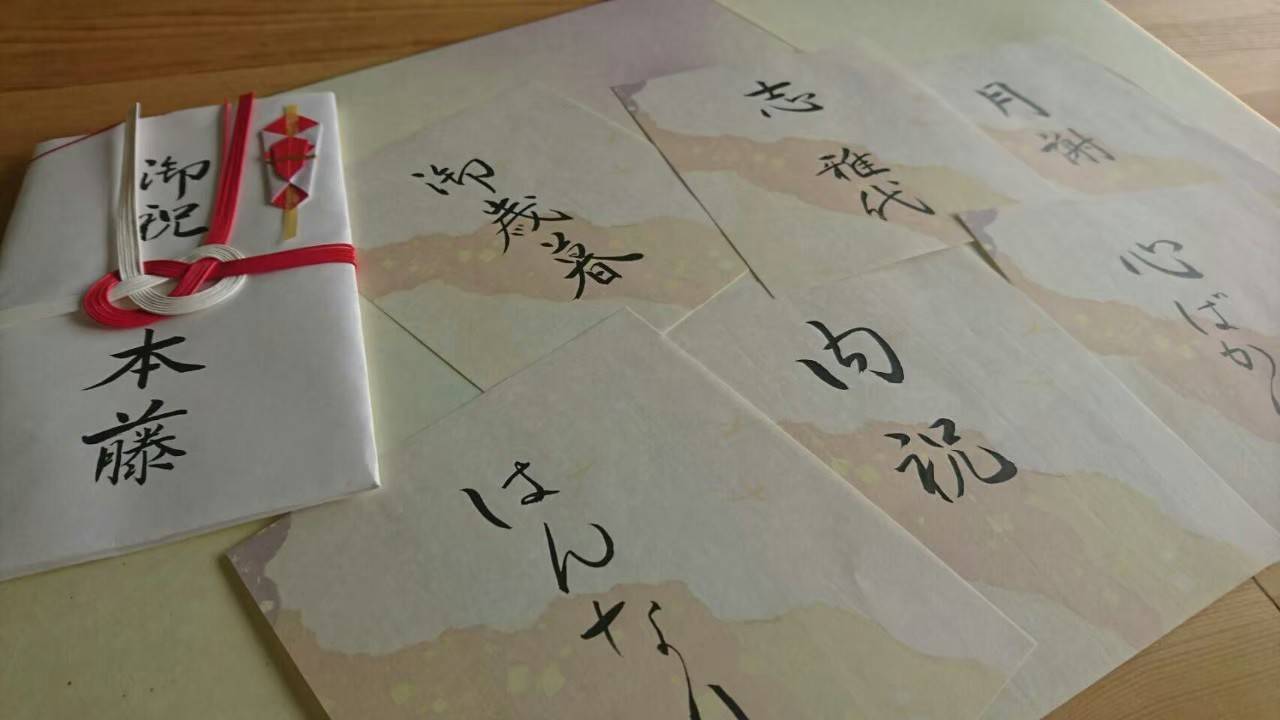 御祝
本藤
御歳暮
志
雅代
月謝
心ばかり
内祝
はんなり